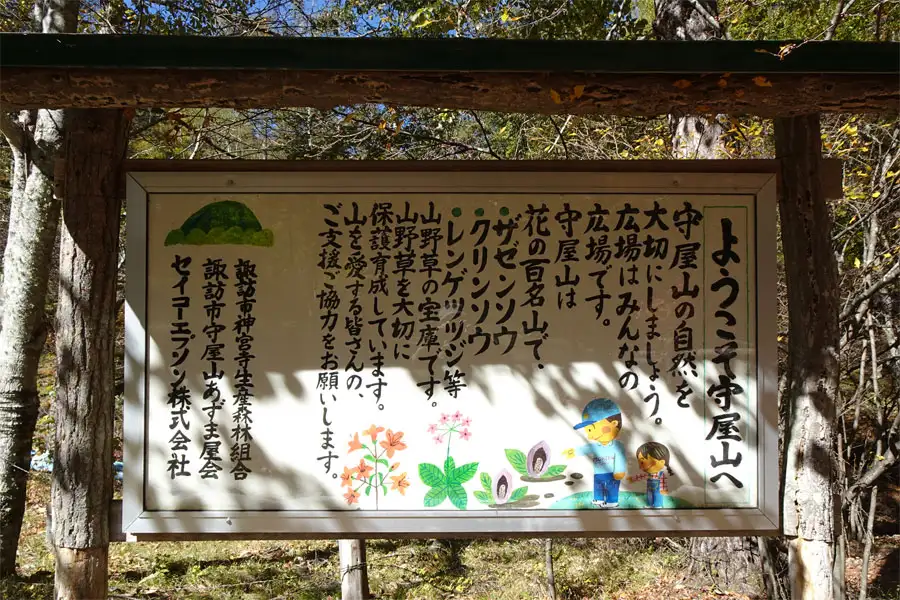 ようこそ守屋山へ
守屋山の自然を
大切にしましょう。
広場はみんなの
広場です。
守屋山は
花の百名山で、
・ザゼンソウ
・クリンソウ
・レンゲツツジ等
山野草の宝庫です。
山野草を大切に
保護育成しています。
山を愛する皆さんの、
ご支援ご協力をお願いします。
諏訪市神宮寺生産森林組合
諏訪市守屋山あずま屋会
セイコーエプソン株式会社